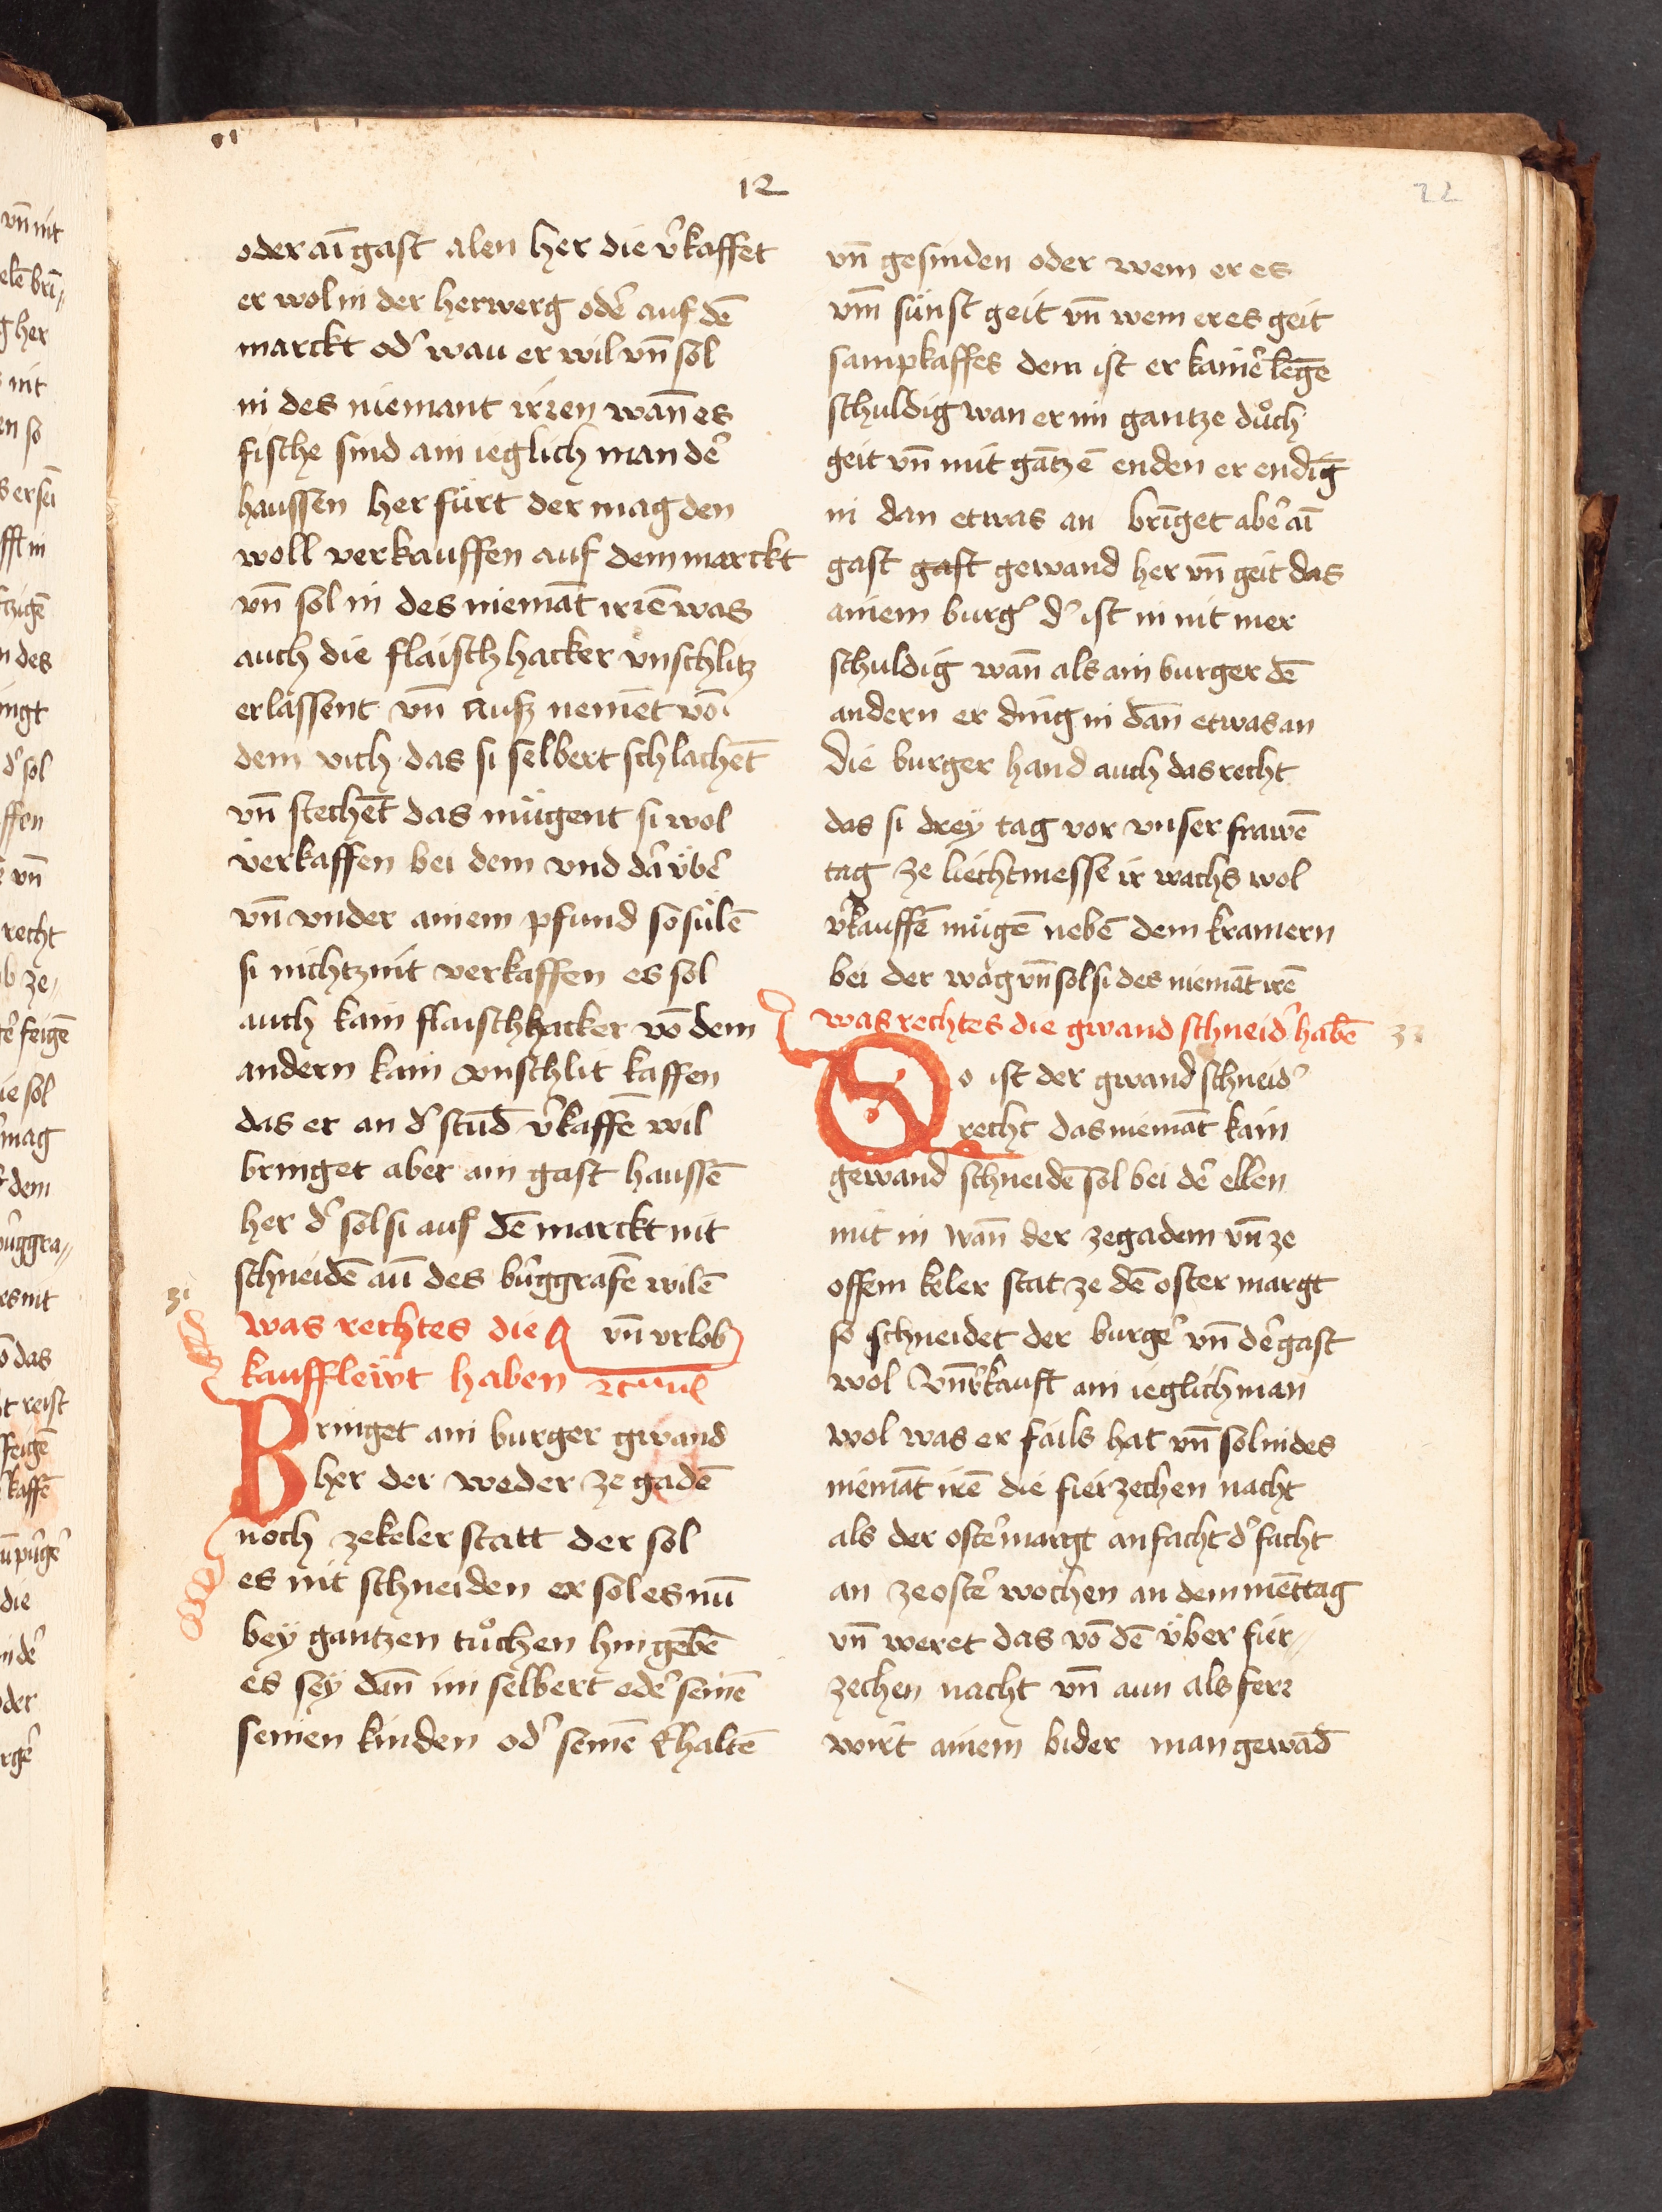 12
22
oder aī gast alen her die v̾kaffet
er wol in der herwerg oder̾ auf dē
marckt od̾ wau er wil vn̄ sol
in des niemant irren wan̄ es
fische sind ain ieglich man der̾
haussen her fürt der mag den
woll verkauffen auf dem marckt
vn̄ sol in des niemāt irrē was
auch die flaisch hacker vnschlitz
erlassent vn̄ aufz nemēt vō
dem vich das si selbert schlachēt
vn̄ stechēt das mügent si wol
verkaffen bei dem vnd dar̾ vber̾
vn̄ vnder ainem pfund so sülē
si nichtz nit verkaffen es sol
auch kain flaischhacker vō dem
andern kain vnschlit kaffen
das er an d̾ stūd v̾kaffē wil
bringet aber ain gast haussē
her d̾ sol si auf dē marckt nit
schneidē aū des bu̾ggrafē wilē
31
was rechtes die vn̄ vrlob
kauffleẅt haben
Bringet ain burger gwand
her der weder ze gadē
noch ze keler statt der sol
es nit schneiden er sol es nū
bey gantzen tůchen hin gebē
es sey dān im selbert oder̾ seinē
seinen kinden od̾ seinē Ehaltē
vn̄ gesinden oder wem er es
vm̄ sünst geit vn̄ wem er es geit
sampkaffes dem ist er kainer̾ legē
schuldig wan er im gantze důch
geit vn̄ mit gātzē enden er endīg
in dan etwas an brīget aber̾ aī
gast gast gewand her vn̄ geit das
ainem burg̾ d̾ ist in nit mer
schuldig wan̄ als ain burger dē
andern er ding in dān etwas an
die burger hand auch das recht
das si drey tag vor vnser frawē
tag ze liechtmesse ir wachs wol
v̾kauffē mügē nebē dem kramern
bei der wåg vn̄ sol si des niemāt irē
was rechtes die gwand schneid̾ habē
32
So ist der gwand schneid̾
recht das niemāt kain
gewand schneidē sol bei der̾ ellen
mit in wan̄ der ze gadem vn̄ ze
offem keler stat ze dē oster margt
so schneidet der burger̾ vn̄ der̾ gast
wol vn̄ v̾kauft ain ieglich man
wol was er fails hat vn̄ sol in des
niemāt irē die fierzechen nacht
als der oster̾margt anfacht d̾ facht
an ze oster̾ wochen an dem mēttag
vn̄ weret das vō dē v̈ber fier⸗
zechen nacht vn̄ aun als ferr
wirt ainem bider man gewād